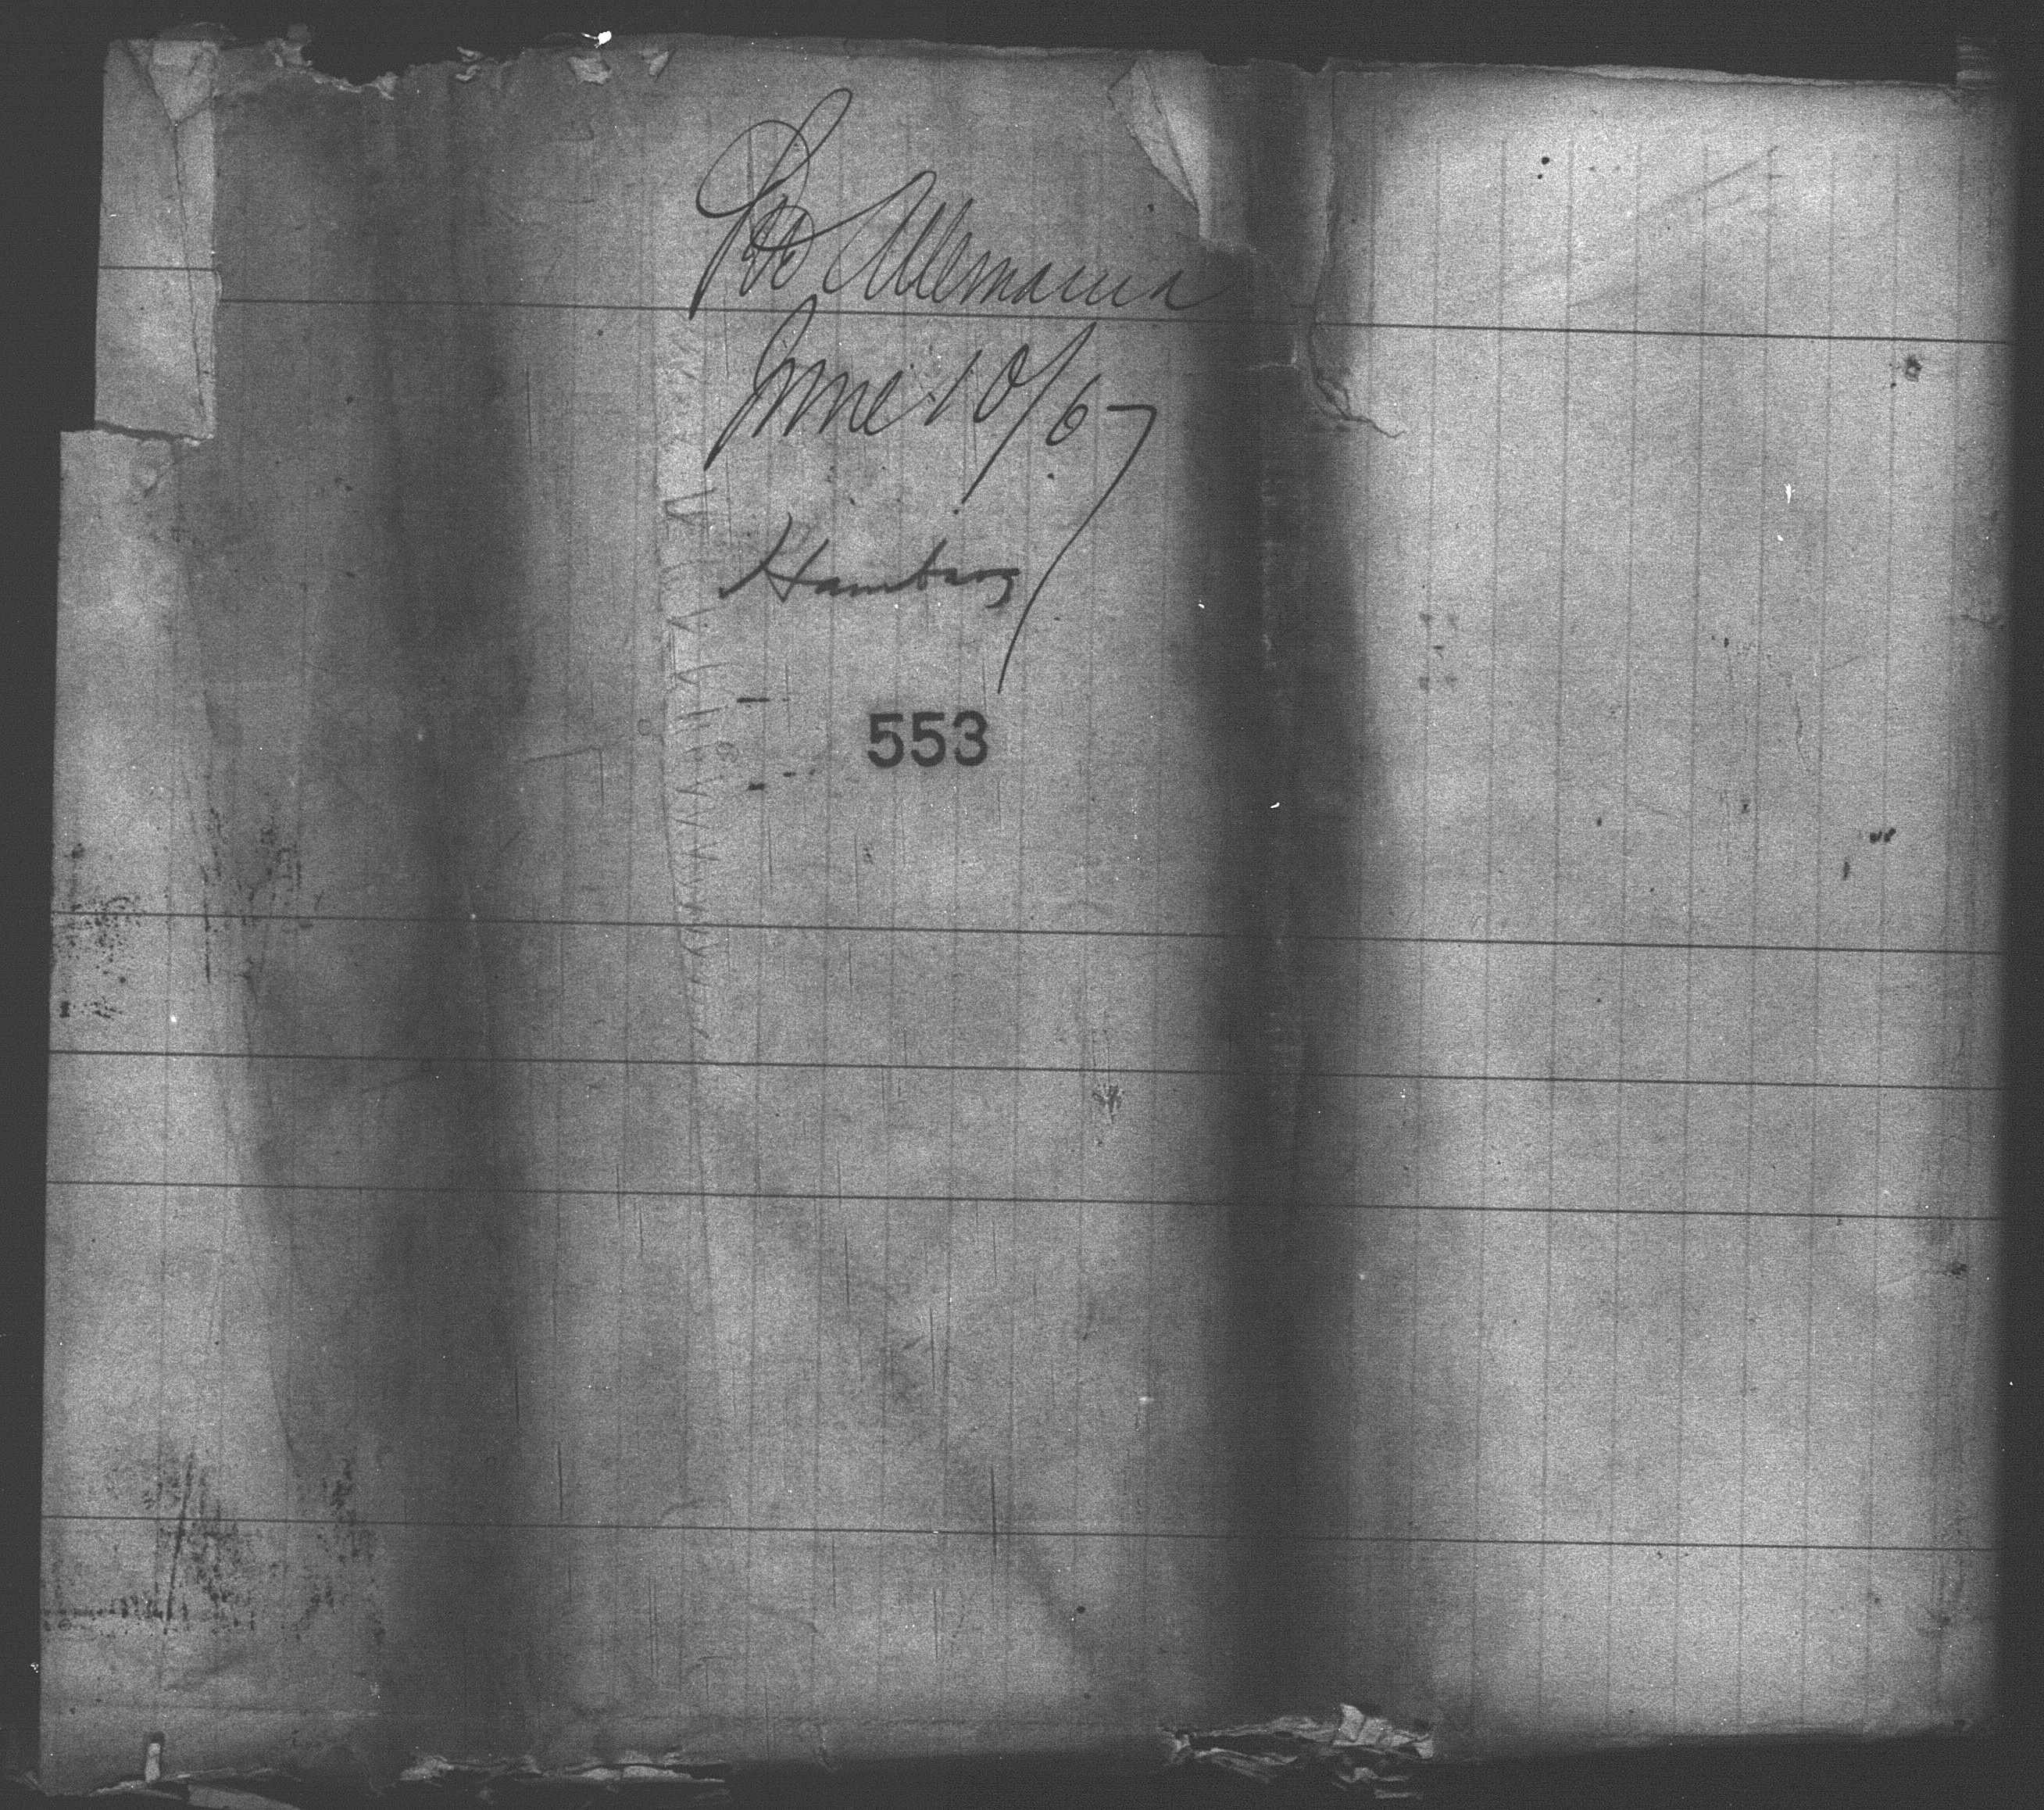 Allemania
June 10/67
Hamburg
553